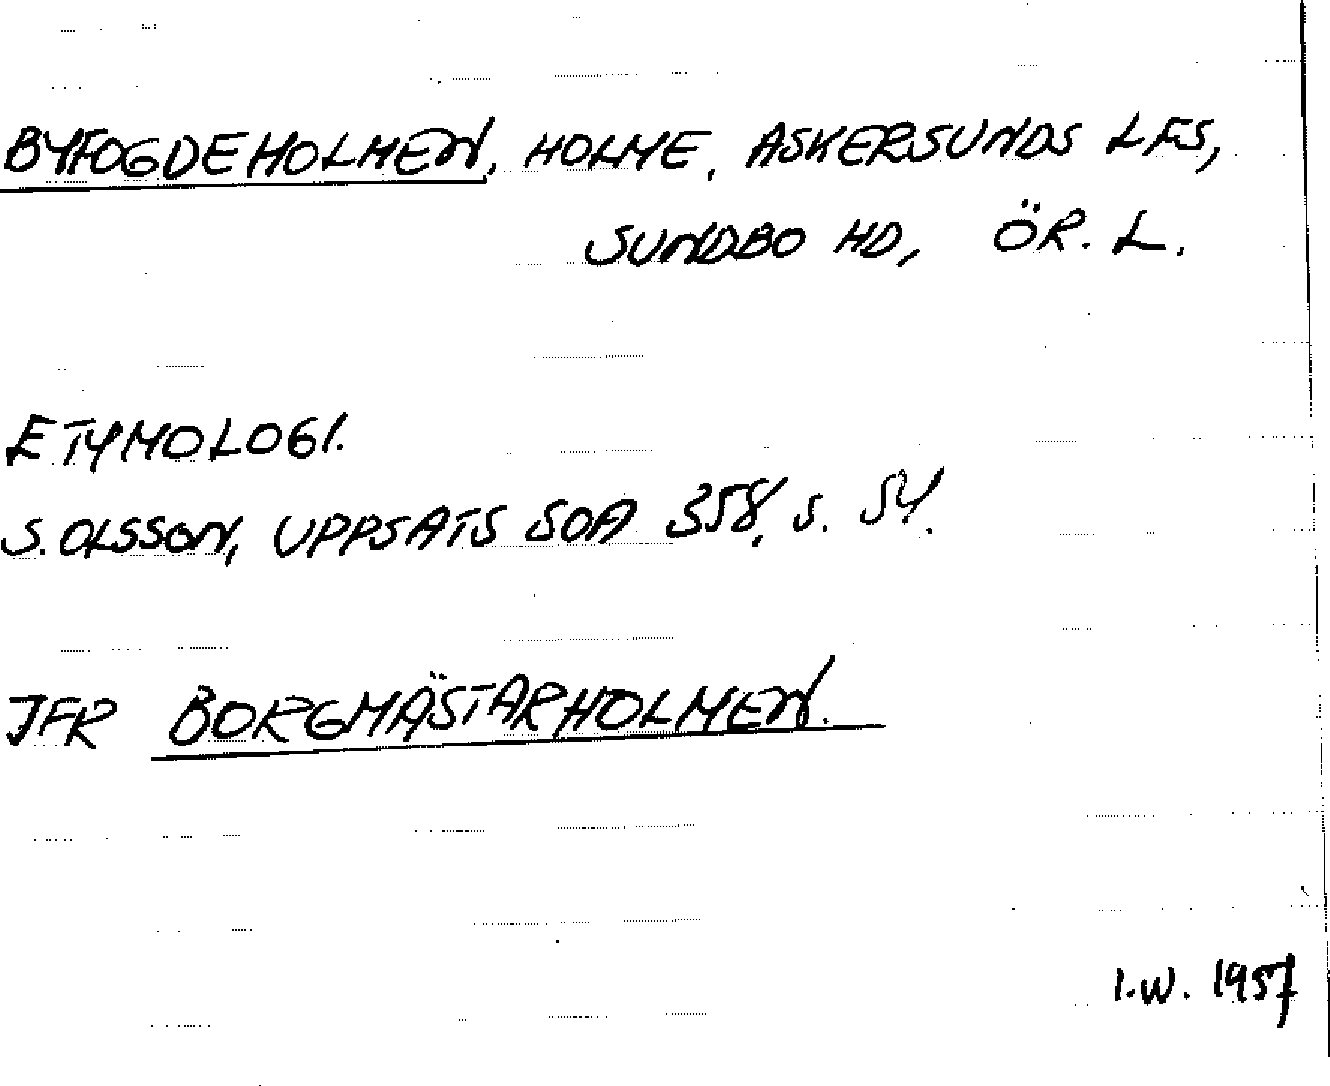 BYFOGDEHOLMEN, HOLME, ASKERSUNDS LFS,
SUNDBO HD, ÖR. L.
ETYMOLOGI.
S. OLSSON, UPPSATS SOA 358, S. 54.
JFR BORGMÄSTARHOLMEN.
I.W. 1957